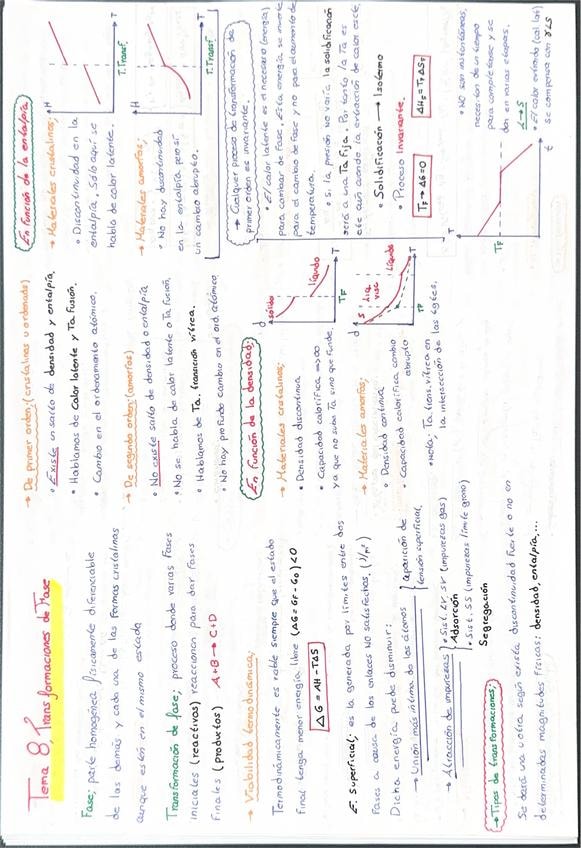 Tema 8, Transformaciones de Fase
Fase; parte homogénea físicamente diferenciable
de las demás y cada una de las formas cristalinas
aunque estén en el mismo estado
Transformación de fase; proceso donde varias Fases
iniciales (reactivos) reaccionan para dar fases
Finales (productos) A+B → C+D
→ Viabilidad termodinámica;
Termodinámicamente es viable siempre que el estado
Final tenga menor energía libre (ΔG = GF - G0) < 0
ΔG = ΔH - TΔS
E. Superficial; es la generada por límites entre dos
Fases a causa de los enlaces NO satisfechos (J/m²)
Dicha energía puede disminuir:
→ Unión más íntima de los átomos } aparición de
tensión superficial
→ Atracción de impurezas
• Sist. LV, SV (impurezas gas)
Adsorción
• Sist. SS (impurezas límite grano)
Segregación
→ Tipos de transformaciones;
Se dará una u otra según exista discontinuidad fuerte o no en
determinadas magnitudes físicas: densidad, entalpía, ...
→ De primer orden; (cristalinas u ordenada)
• Existe un salto de densidad y entalpía
• Hablamos de calor latente y Tª fusión.
• Cambio en el ordenamiento atómico.
→ De segundo orden: (amorfas)
• No existe salto de densidad o entalpía
• No se habla de calor latente o Tª fusión
• Hablamos de Tª. transición vítrea.
• No hay profundo cambio en el ord. atómico
En función de la densidad;
→ Materiales cristalinos;
• Densidad discontinua
• Capacidad calorífica → ∞
ya que no suba Tª sino que funde.
d
sólido
líquido
TF
T
→ Materiales amorfos;
• Densidad continua
• Capacidad calorífica cambio
abrupto
*nota; Tª trans. vítrea en
la intersección de las tgtes.
d
S
Liq.
visc
Líquido
T
En función de la entalpía
→ Materiales cristalinos;
• Discontinuidad en la
entalpía. Sólo aquí se
habla de calor latente.
H
T. Transf.
T
→ Materiales amorfos;
• No hay discontinuidad
en la entalpía pero sí
un cambio abrupto.
H
T. Transf.
T
→ Cualquier proceso de transformación de
primer orden es invariante.
• El calor latente es el necesario (energía)
para cambiar de fase. Esta energía se invierte
para el cambio de fase y no para el aumento de
temperatura.
• Si la presión no varía la solidificación
será a una Tª Fija. Por tanto la Tª es
cte aún cuando la extracción de calor esté.
• Solidificación → Isotermo
• Proceso Invariante.
TF → ΔG = 0
ΔHF = TF ΔSF
T
TF
t
• No son instantáneas,
necesitan de un tiempo
para completarse y se
dan en varias etapas.
L → S
• El calor extraído (cal. lat)
se compensa con